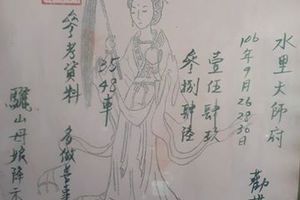 水里大師府
106年9月26 28 30日
壹伍肆玖
參捌肆陸
35 48車
參考資料
多做善事
驪山丹娘降示